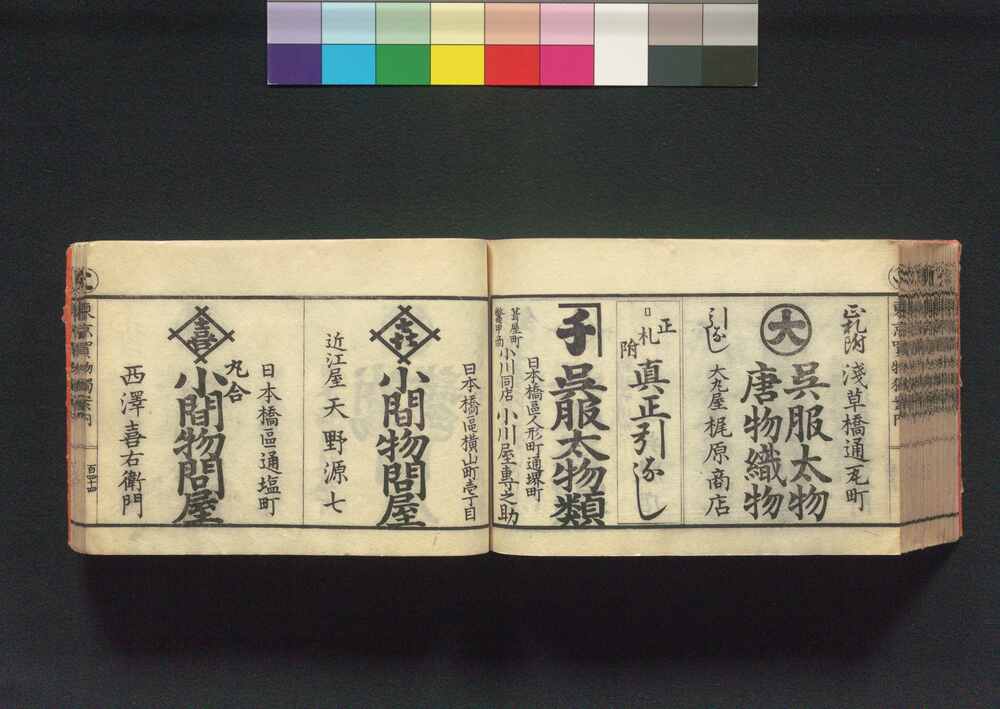 正札附
淺草橋通瓦町
大
呉服太物
唐物織物
引なし
大丸屋梶原商店
正札附
真正引なし
呉服太物類
日本橋區人形町通堺町
葺屋町
鼈甲商小川同店
小川屋專之助
日本橋區横山町壱丁目
小間物問屋
近江屋天野源七
日本橋區通塩町
丸合
喜
小間物問屋
西澤喜右衛門
東京買物獨案内
百四十四